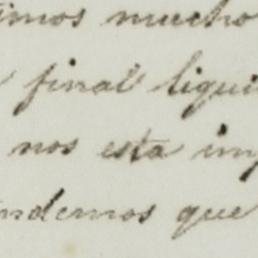 imos mucho
final liqui
nos esta imp
ndemos que